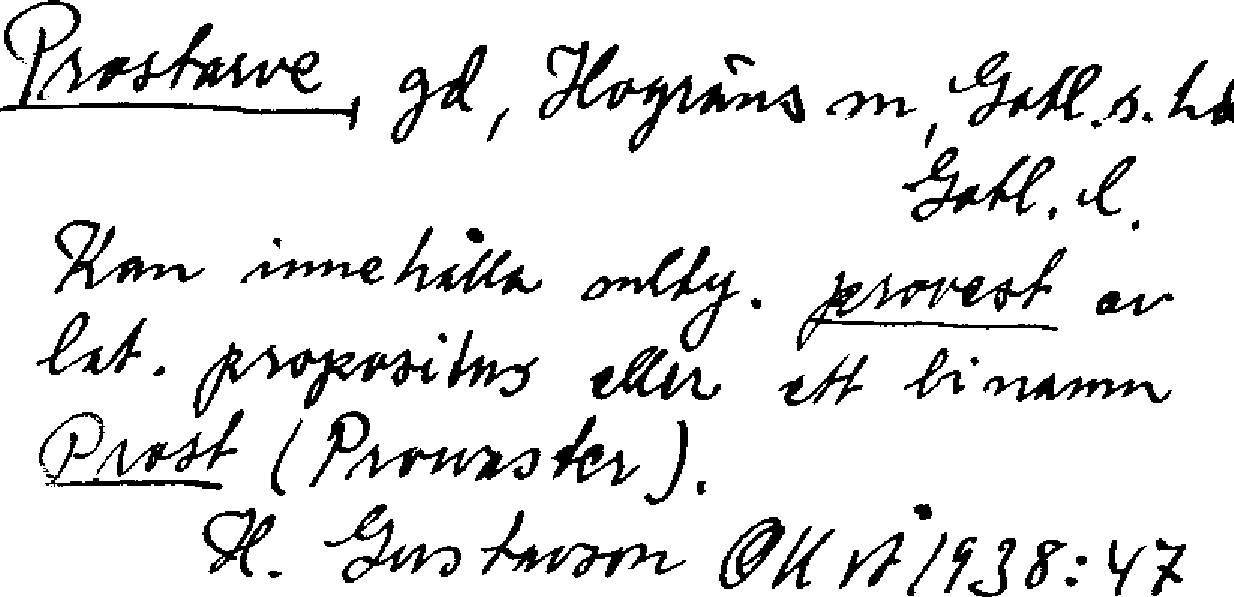 Prostarve, gd, Hogräns sn, Gotl. s. hd
Gotl. l.
Kan innehålla mlty. provest av
lat. propositus eller ett binamn
Prost (Prouaster).
H. Gustavson OK 1938:47